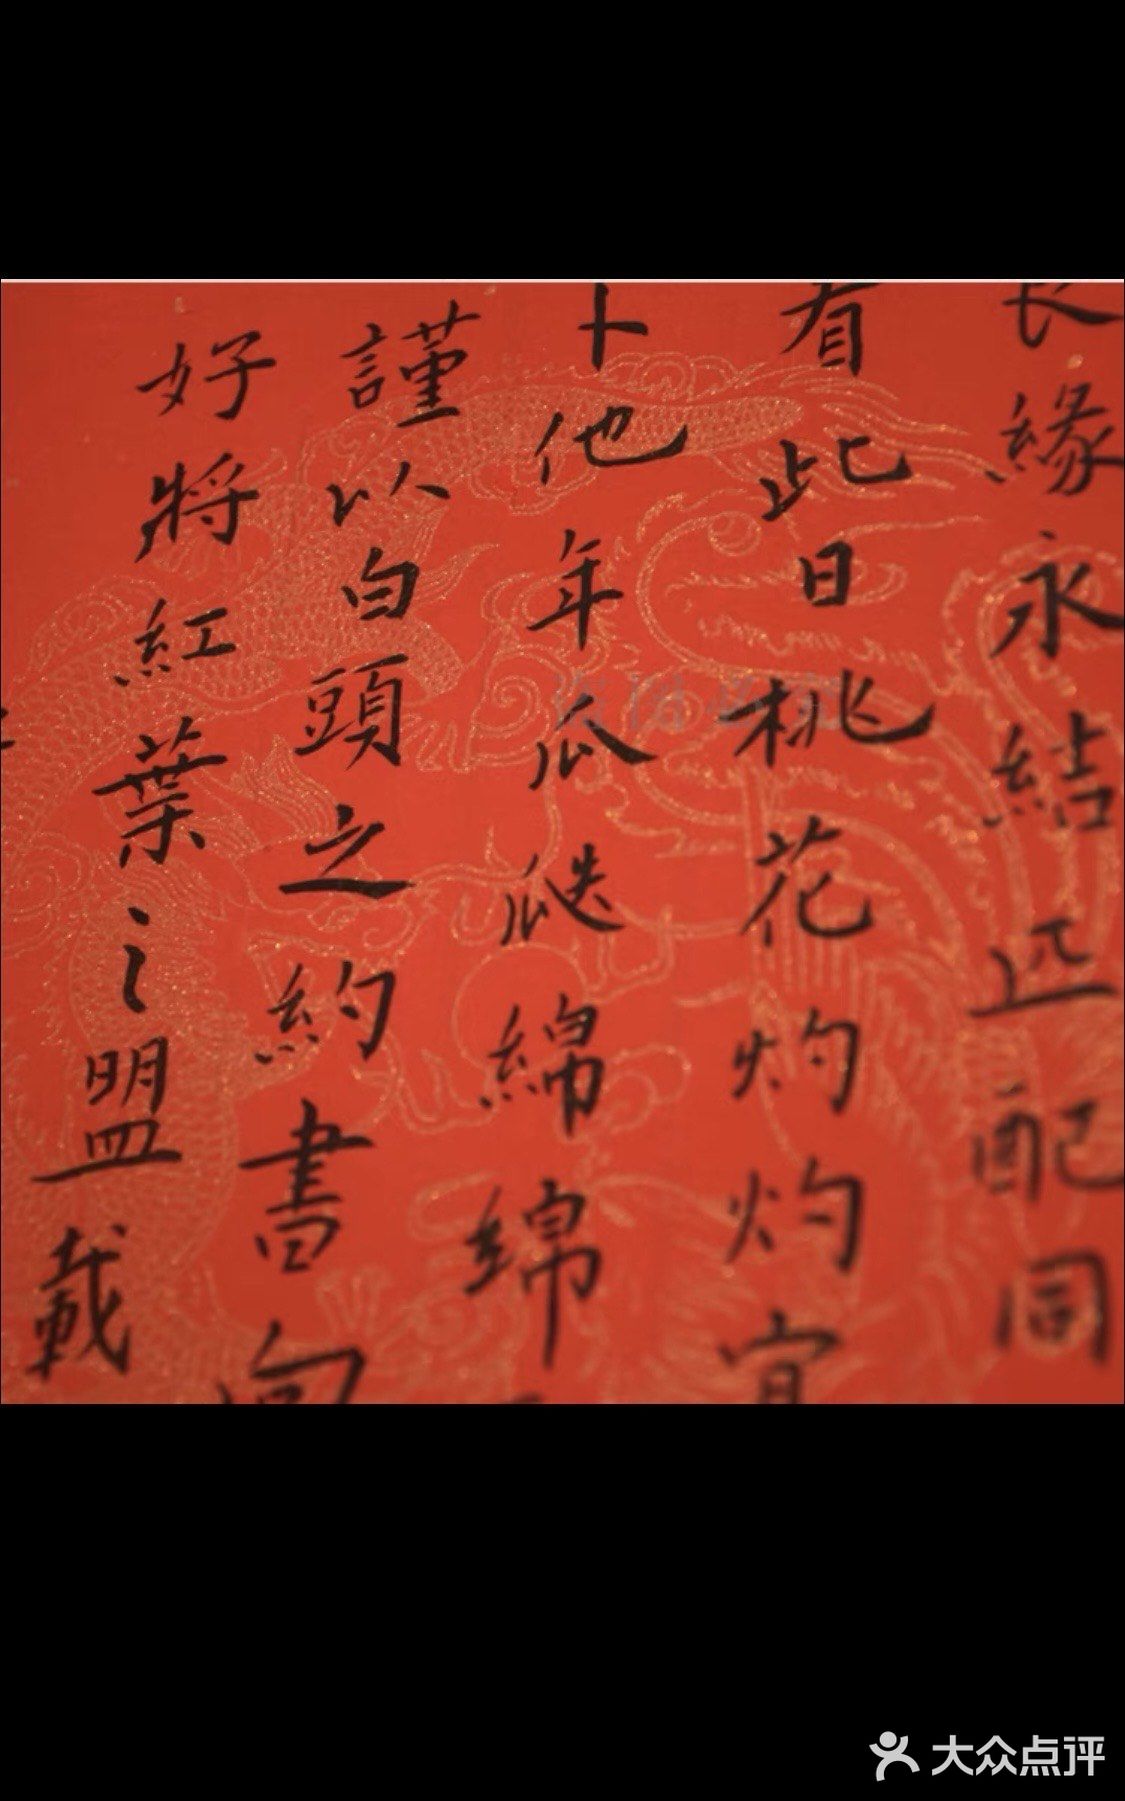 良緣永結匹配同
看此日桃花灼灼宜
卜他年瓜瓞綿綿
謹以白頭之約書向
好將紅葉之盟載
大众点评